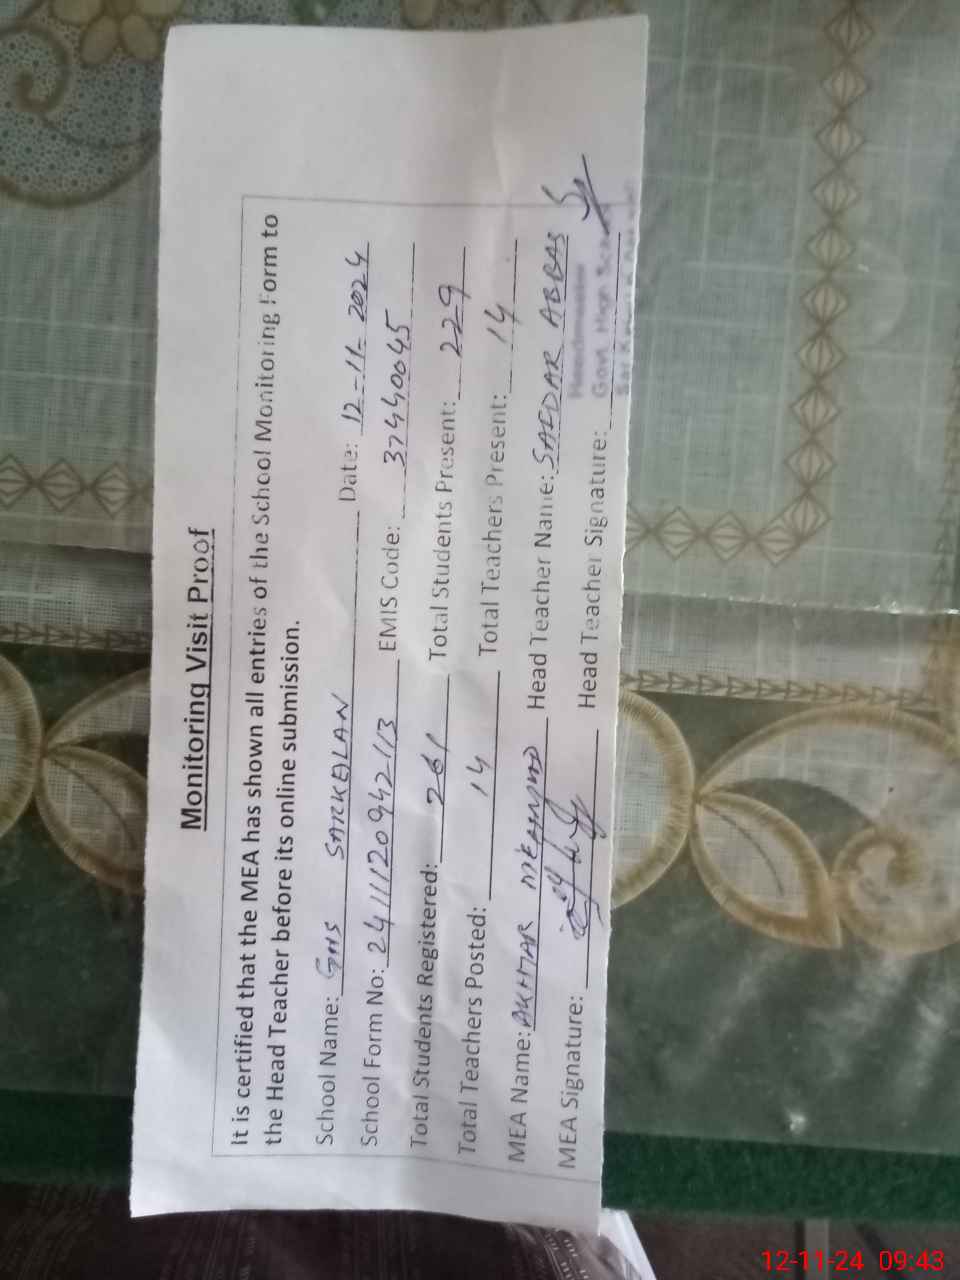 Monitoring Visit Proof
It is certified that the MEA has shown all entries of the School Monitoring Form to
the Head Teacher before its online submission.
School Name: GHS SARKALAN Date: 12-11-2024
School Form No: 24111120942113 EMIS Code: 37440045
Total Students Registered: 261 Total Students Present: 229
Total Teachers Posted: 14 Total Teachers Present: 14
MEA Name: AKHTAR MEHMMD Head Teacher Name: SAFDAR ABBAS
MEA Signature: Head Teacher Signature:
Headmaster
Govt. High
12-11-24 09:43